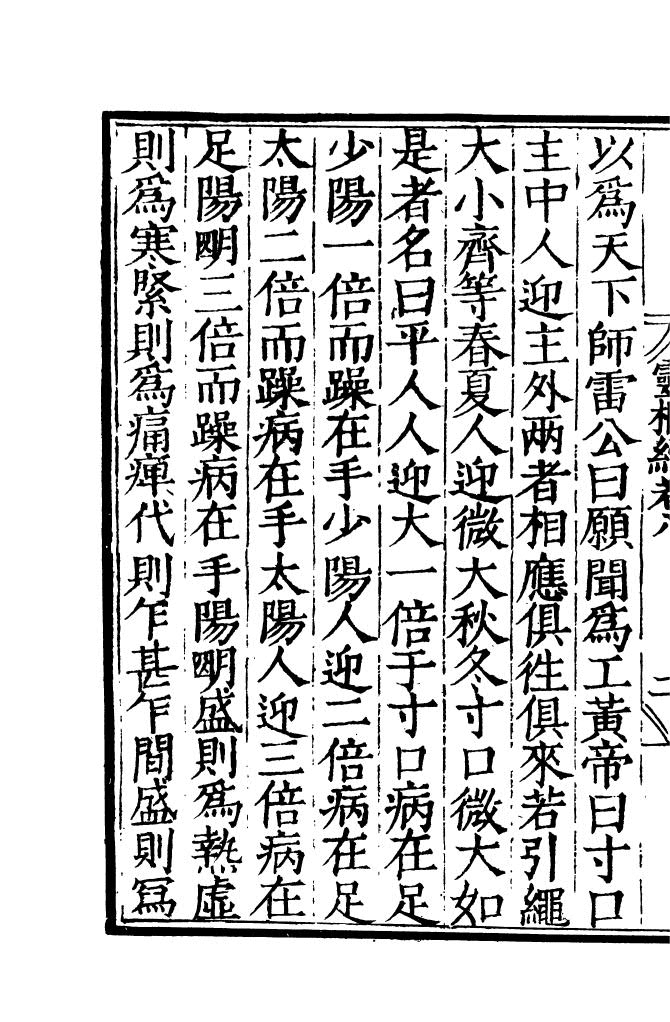 以爲天下師雷公曰願聞爲工黃帝曰寸口
主中人迎主外兩者相應俱徃俱來若引繩
大小齊等春夏人迎微大秋冬寸口微大如
是者名曰平人人迎大一倍于寸口病在足
少陽一倍而躁在手少陽人迎二倍病在足
太陽二倍而躁病在手太陽人迎三倍病在
足陽明三倍而躁病在手陽明盛則爲熱虛
則爲寒緊則爲痛痺代則乍甚乍間盛則冩